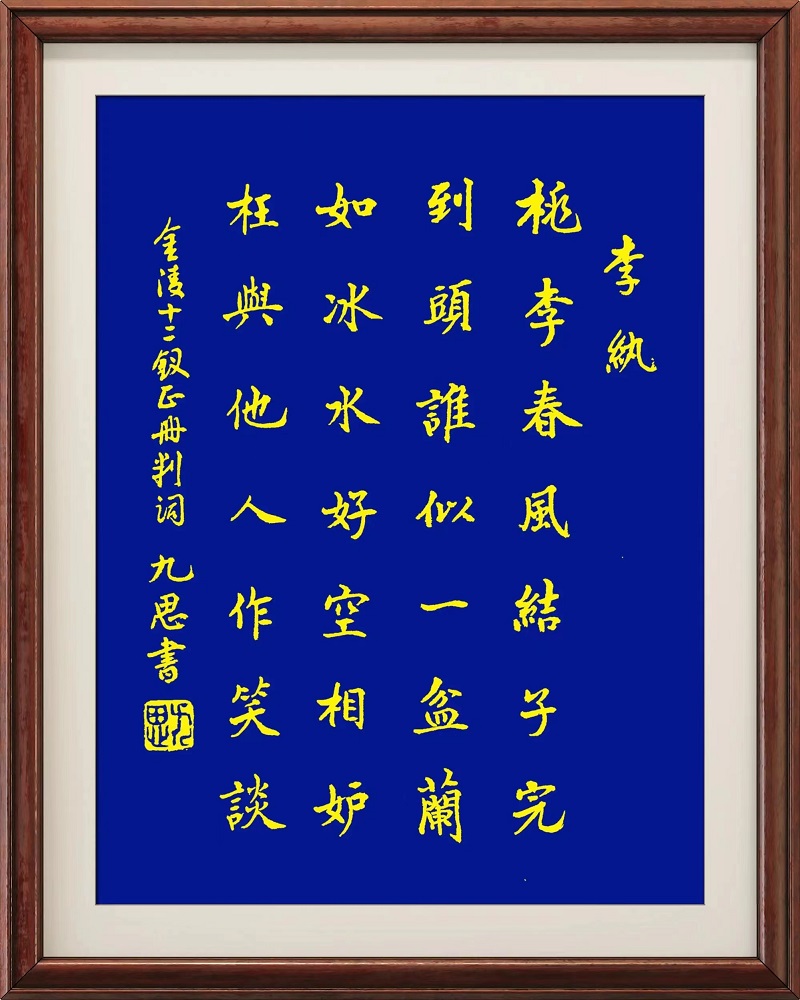 李紈
桃李春風結子完
到頭誰似一盆蘭
如冰水好空相妒
枉與他人作笑談
金陵十二釵正册判词 九思書
九思